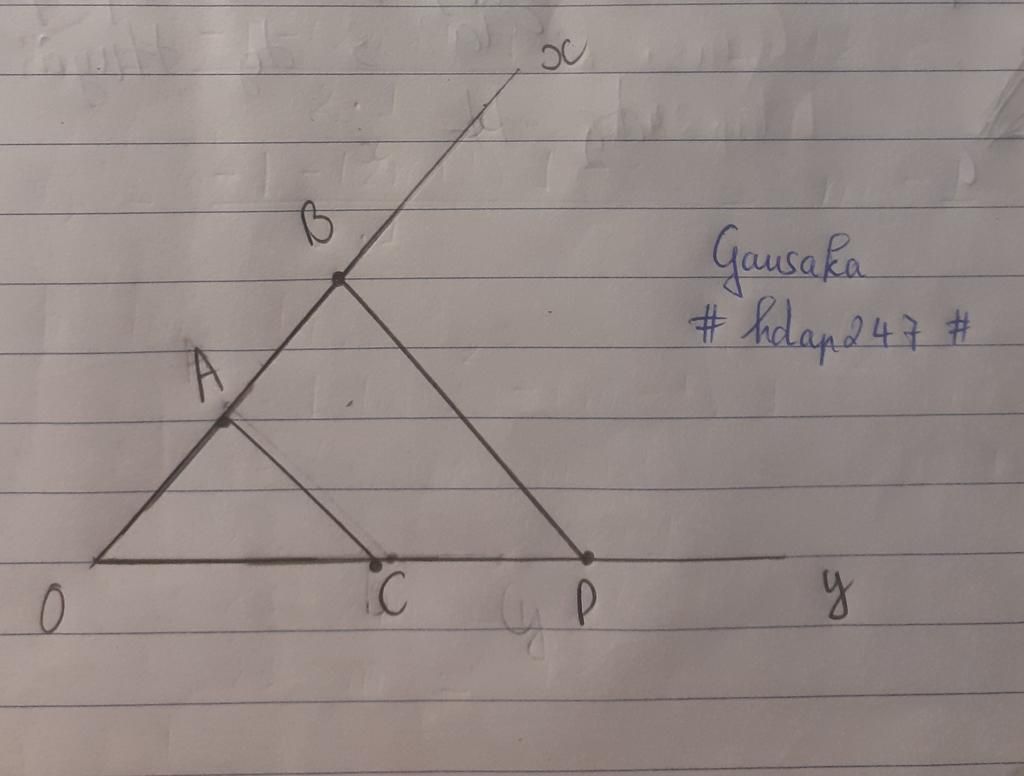 x
B
Gausaka
# hdap247 #
A
O
C
D
y